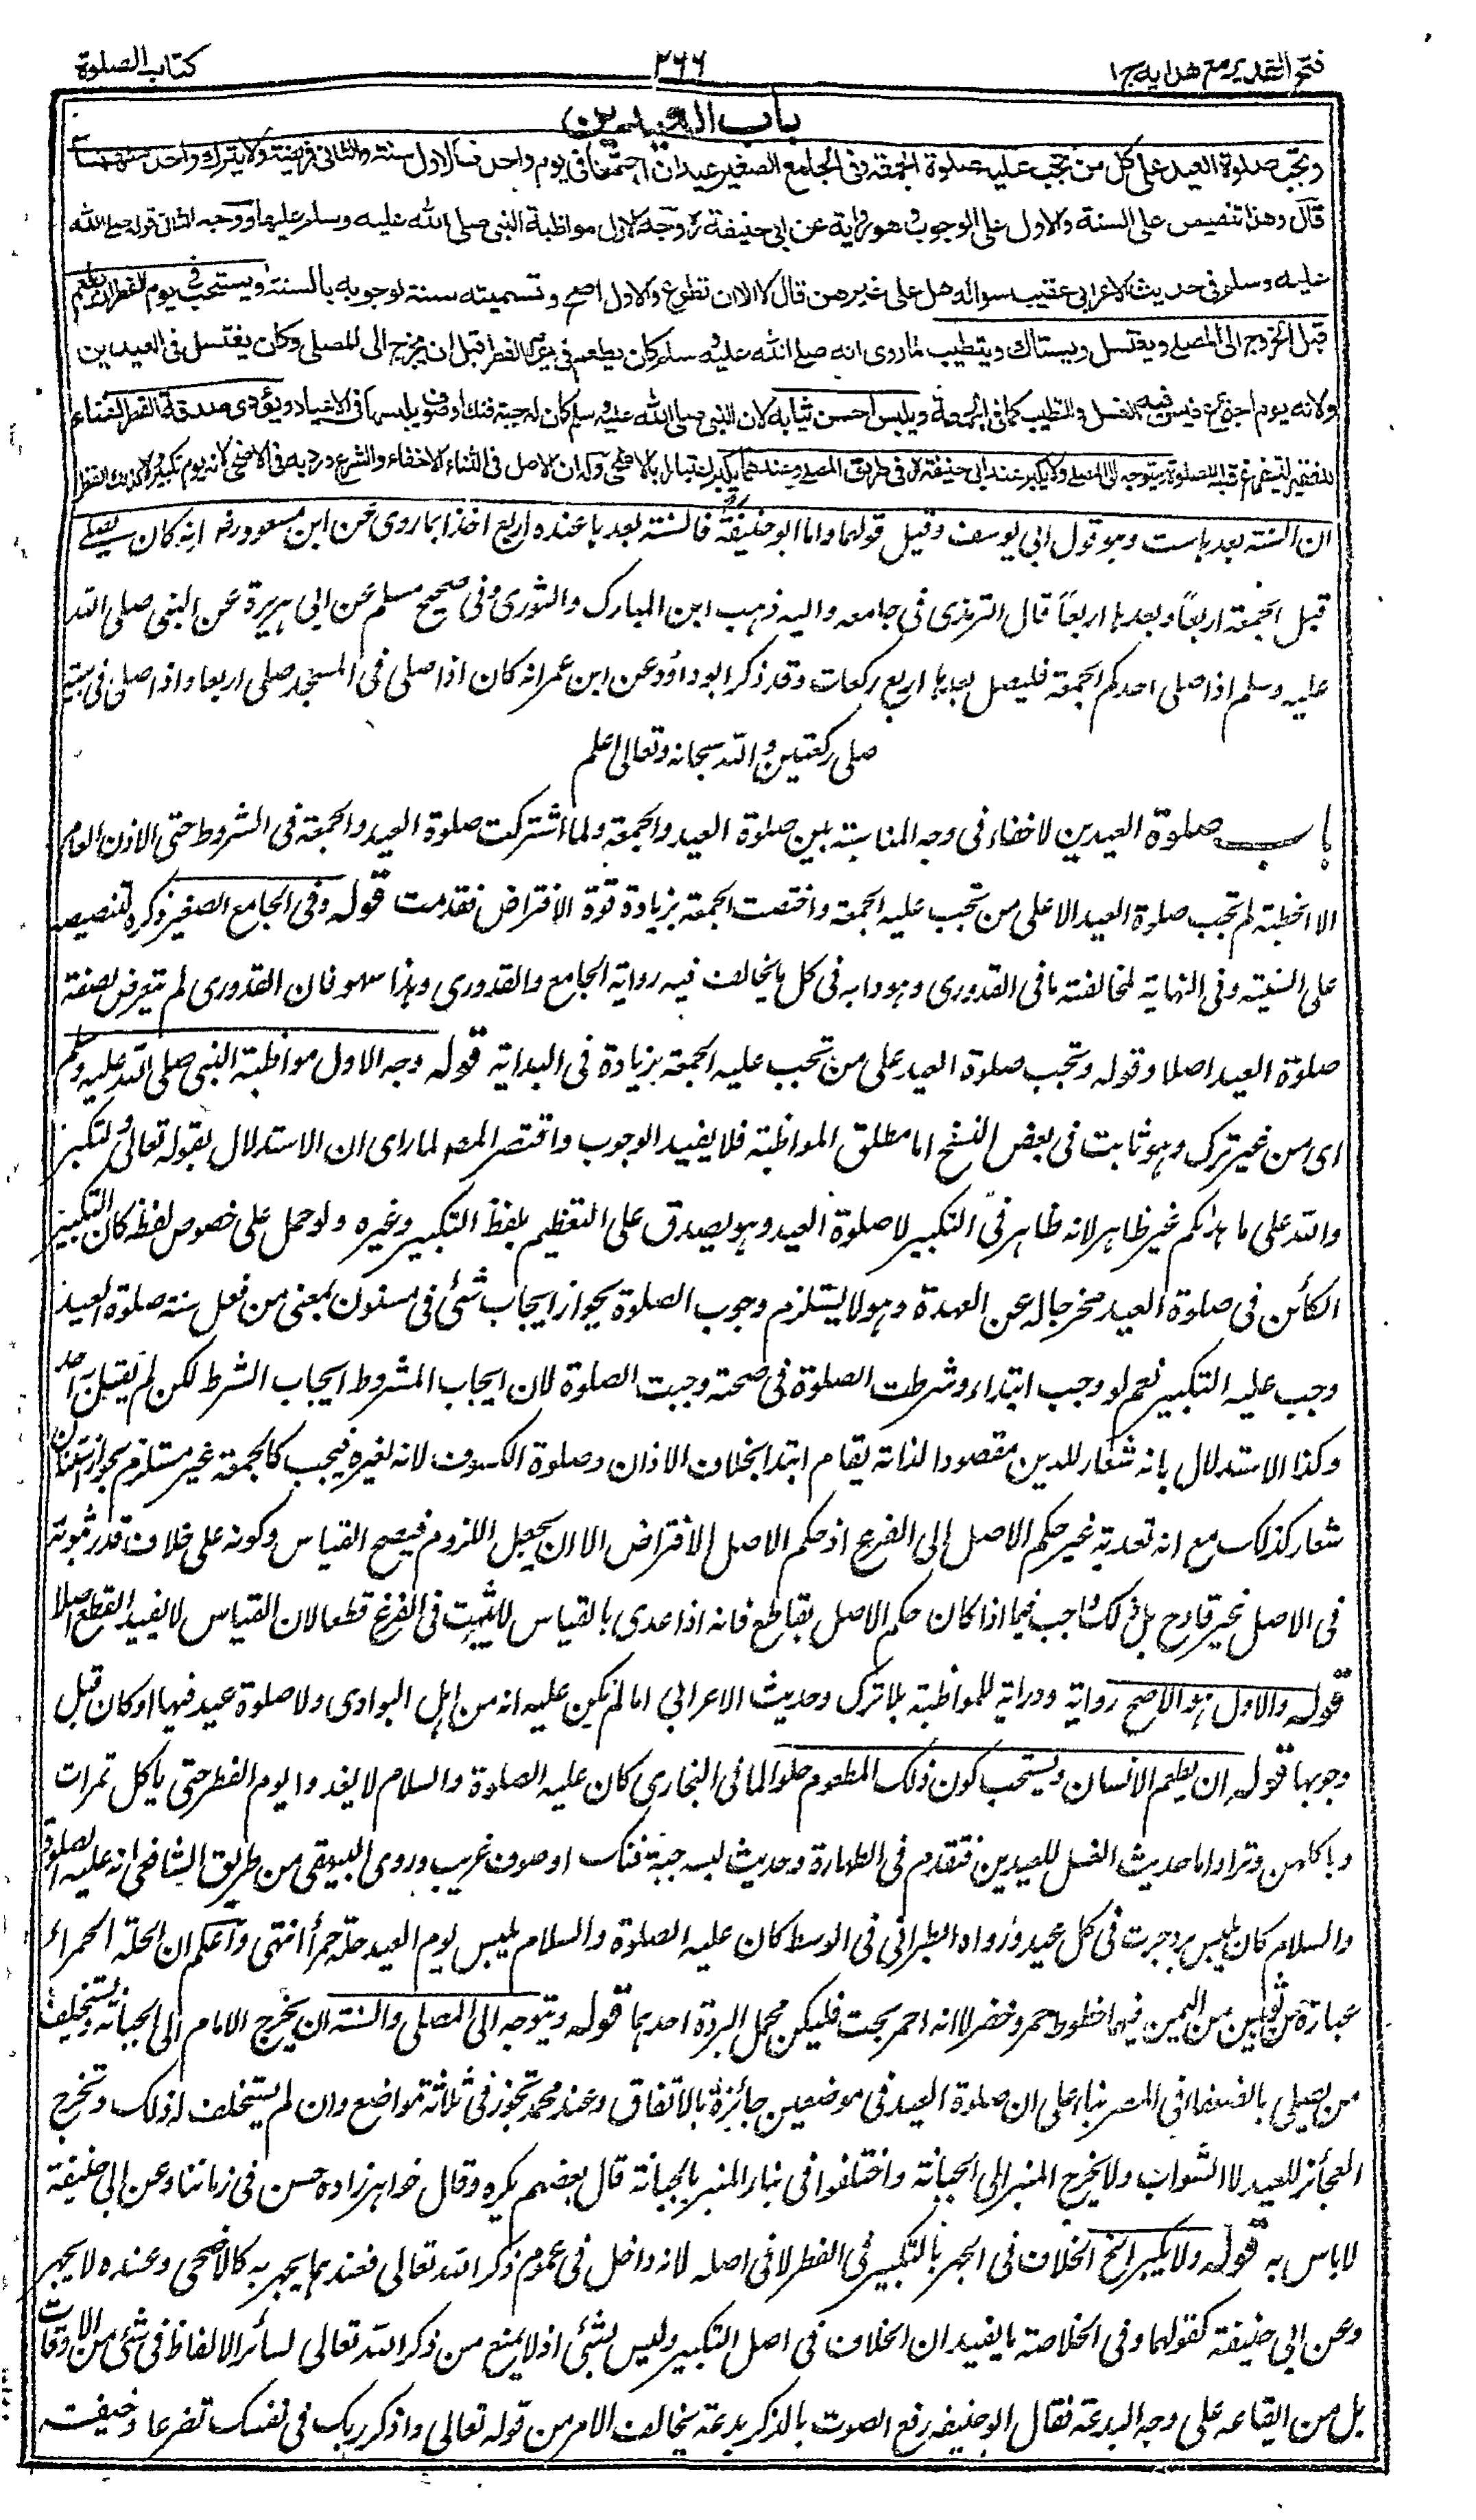 فتح القدير مع هدايه ج ١
٢٦٦
كتاب الصلوة
باب العيدين
وتجب صلوة العيد على كل من تجب عليه صلوة الجمعة وفى الجامع الصغير عيدان اجتمعا فى يوم واحد فالاول سنة والثانى فريضة ولا يترك واحد منهما
قال وهذا تنصيص على السنة والاول على الوجوب وهو رواية عن ابى حنيفة رح وجه الاول مواظبة النبى صلى الله عليه وسلم عليها ووجه الثانى قوله صلى الله
عليه وسلم فى حديث الاعرابى عقيب سواله هل على غيرهن قال لا الا ان تطوع والاول اصح وتسميته سنة لوجوبه بالسنة ويستحب فى يوم الفطر ان يطعم
قبل الخروج الى المصلى ويغتسل ويستاك ويتطيب لما روى انه صلى الله عليه وسلم كان يطعم فى يوم الفطر قبل ان يخرج الى المصلى وكان يغتسل فى العيدين
ولانه يوم اجتماع فيسن فيه الغسل والتطيب كما فى الجمعة ويلبس احسن ثيابه لان النبى صلى الله عليه وسلم كان له جبة فنك او صوف يلبسها فى الاعياد ويؤدى صدقة الفطر اغناء
للفقير ليتفرغ قلبه للصلوة ويتوجه الى المصلى ولا يكبر عند ابى حنيفة رح فى طريق المصلى وعندهما يكبر اعتبارا بالاضحى وله ان الاصل فى الثناء الاخفاء والشرع ورد به فى الاضحى لانه يوم تكبير ولا كذلك الفطر
ان السنة بعدها ست وهو قول ابى يوسف وقيل قولهما واما ابو حنيفة رح فالسنة بعدها عنده اربع اخذا بما روى عن ابن مسعود رض انه كان يصلى
قبل الجمعة اربعاً وبعدها اربعاً قال الترمذى فى جامعه واليه ذهب ابن المبارك والثورى وفى صحيح مسلم عن ابى هريرة عن النبى صلى الله
عليه وسلم اذا صلى احدكم الجمعة فليصل بعدها اربع ركعات وقد ذكر ابو داؤد عن ابن عمر انه كان اذا صلى فى المسجد صلى اربعا واذا صلى فى بيته
صلى ركعتين والله سبحانه وتعالى اعلم
باب صلوة العيدين لا خفاء فى وجه المناسبة بين صلوة العيد والجمعة ولما اشتركت صلوة العيد والجمعة فى الشروط حتى الاذن العام
الا الخطبة لم تجب صلوة العيد الا على من تجب عليه الجمعة واختصت الجمعة بزيادة قوة الافتراض فقدمت قوله وفى الجامع الصغير ذكره لتنصيصه
على السنية وفى النهاية لمخالفته ما فى القدورى وهو دابه فى كل ما يخالف فيه رواية الجامع والقدورى وهذا سهو فان القدورى لم يتعرض لصفة
صلوة العيد اصلا وقوله وتجب صلوة العيد على من تجب عليه الجمعة بزيادة فى البداية قوله وجه الاول مواظبة النبى صلى الله عليه وسلم
اى من غير ترك وهو ثابت فى بعض النسخ اما مطلق المواظبة فلا يفيد الوجوب واقتصر المصـ لما راى ان الاستدلال بقوله تعالى ولتكبروا
والله على ما هداكم غير ظاهر لانه ظاهر فى التكبير لا صلوة العيد وهو يصدق على التعظيم بلفظ التكبير وغيره ولو حمل على خصوص لفظه كان التكبير
الكائن فى صلوة العيد مخرجا له عن العهدة وهو لا يستلزم وجوب الصلوة لجواز ايجاب شئ فى مسنون بمعنى من فعل سنة صلوة العيد
وجب عليه التكبير نعم لو وجب ابتداء وشرطت الصلوة فى صحته وجبت الصلوة لان ايجاب المشروط ايجاب الشرط لكن لم يقل به احد
وكذا الاستدلال بانه شعار للدين مقصودا لذاته يقام ابتداء بخلاف الاذان وصلوة الكسوف لانه لغيره فيجب كالجمعة غير مستلزم لجواز استنان
شعار كذلك مع انه تعدية غير حكم الاصل الى الفرع اذ حكم الاصل الافتراض الا ان يجعل اللزوم فيصح القياس وكونه على خلاف قدر ثبوته
فى الاصل غير قادح بل ذلك واجب فيما اذا كان حكم الاصل بقاطع فانه اذا عدى بالقياس لا يثبت فى الفرع قطعا لان القياس لا يفيد القطع اصلا
قوله والاول هو الاصح رواية ودراية للمواظبة بلا ترك وحديث الاعرابى اما لم يكن عليه انه من اهل البوادى ولا صلوة عيد فيها او كان قبل
وجوبها قوله ان يطعم الانسان ويستحب كون ذلك المطعوم حلوا لما فى البخارى كان عليه الصلوة والسلام لا يغدو يوم الفطر حتى ياكل تمرات
وياكلهن وترا واما حديث الغسل للعيدين فتقدم فى الطهارة وحديث لبسه جبة فنك او صوف غريب وروى البيهقى من طريق الشافعى انه عليه الصلوة
والسلام كان يلبس برد حبرة فى كل عيد ورواه الطبرانى فى الوسط كان عليه الصلوة والسلام يلبس يوم العيد حلة حمرأ انتهى واعلم ان الحلة الحمراء
عبارة عن ثوبين من اليمن فيهما خطوط حمر وخضر لا انه احمر بحت فليكن محمل البردة احدهما قوله ويتوجه الى المصلى والسنة ان يخرج الامام الى الجبانة ويستخلف
من يصلى بالضعفاء فى المصر بناء على ان صلوة العيد فى موضعين جائزة بالاتفاق وعند محمد تجوز فى ثلاثة مواضع وان لم يستخلف له ذلك وتخرج
العجائز للعيد لا الشواب ولا يخرج المنبر الى الجبانة واختلفوا فى بناء المنبر بالجبانة قال بعضهم يكره وقال خواهر زاده حسن فى زماننا وعن ابى حنيفة
لا باس به قوله ولا يكبر الخ الخلاف فى الجهر بالتكبير فى الفطر لا فى اصله لانه داخل فى عموم ذكر الله تعالى فعندهما يجهر به كالاضحى وعنده لا يجهر
وعن ابى حنيفة كقولهما وفى الخلاصة ما يفيد ان الخلاف فى اصل التكبير وليس بشئ اذ لا يمنع من ذكر الله تعالى لسائر الالفاظ فى شئ من الاوقات
بل من ايقاعه على وجه البدعة فقال ابو حنيفه رفع الصوت بالذكر بدعة يخالف الامر من قوله تعالى واذكر ربك فى نفسك تضرعا وخيفة